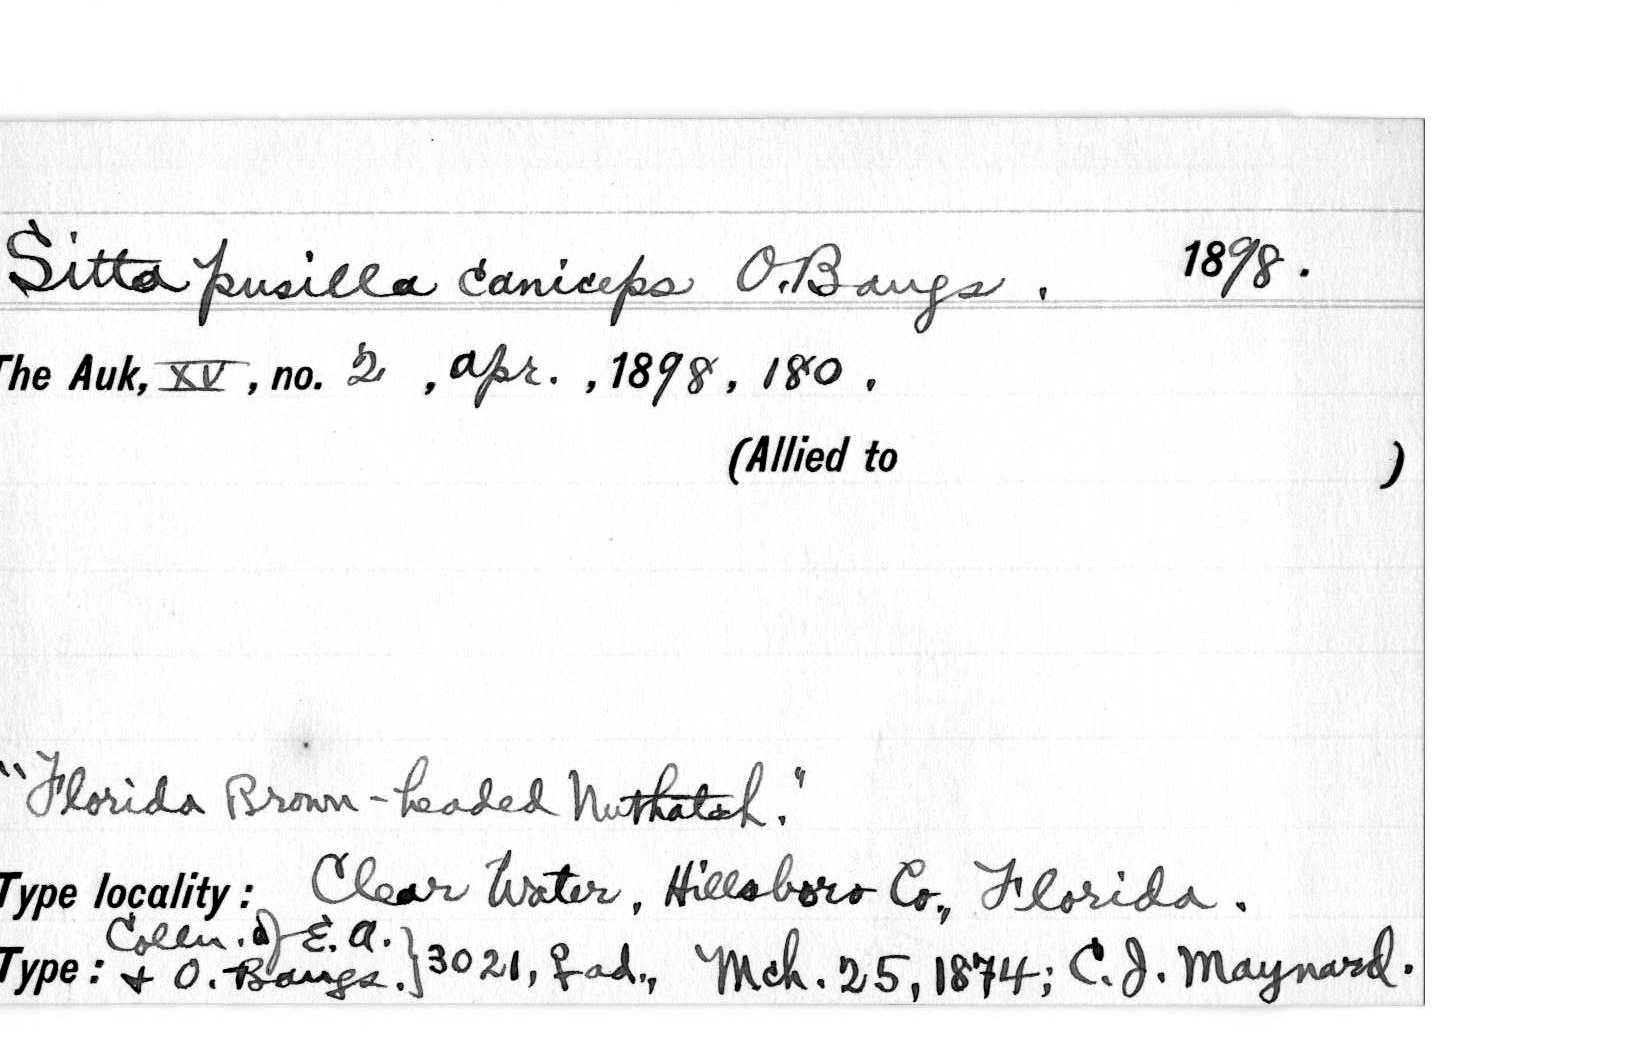 Sitta pusilla caniceps O. Bangs. 1898.
The Auk, XV, no. 2, Apr., 1898, 180.
(Allied to )
"Florida Brown-headed Nuthatch."
Type locality: Clear Water, Hillsboro Co., Florida.
Type: Colln. of E. A. & O. Bangs. } 3021, ♀ ad., Mch. 25, 1874; C. J. Maynard.